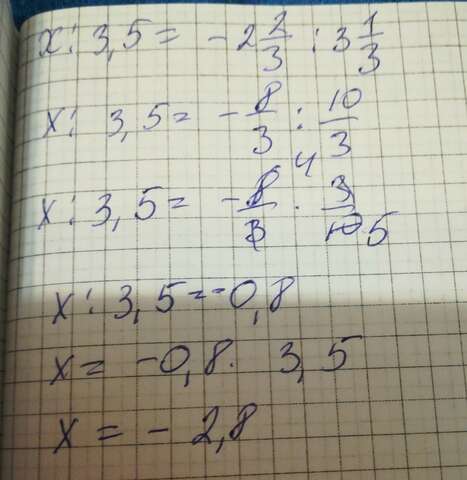 x : 3,5 = -2 2/3 : 3 1/3
x : 3,5 = -8/3 : 10/3
x : 3,5 = -8/3 4 · 3/10 5
x : 3,5 = -0,8
x = -0,8 · 3,5
x = - 2,8